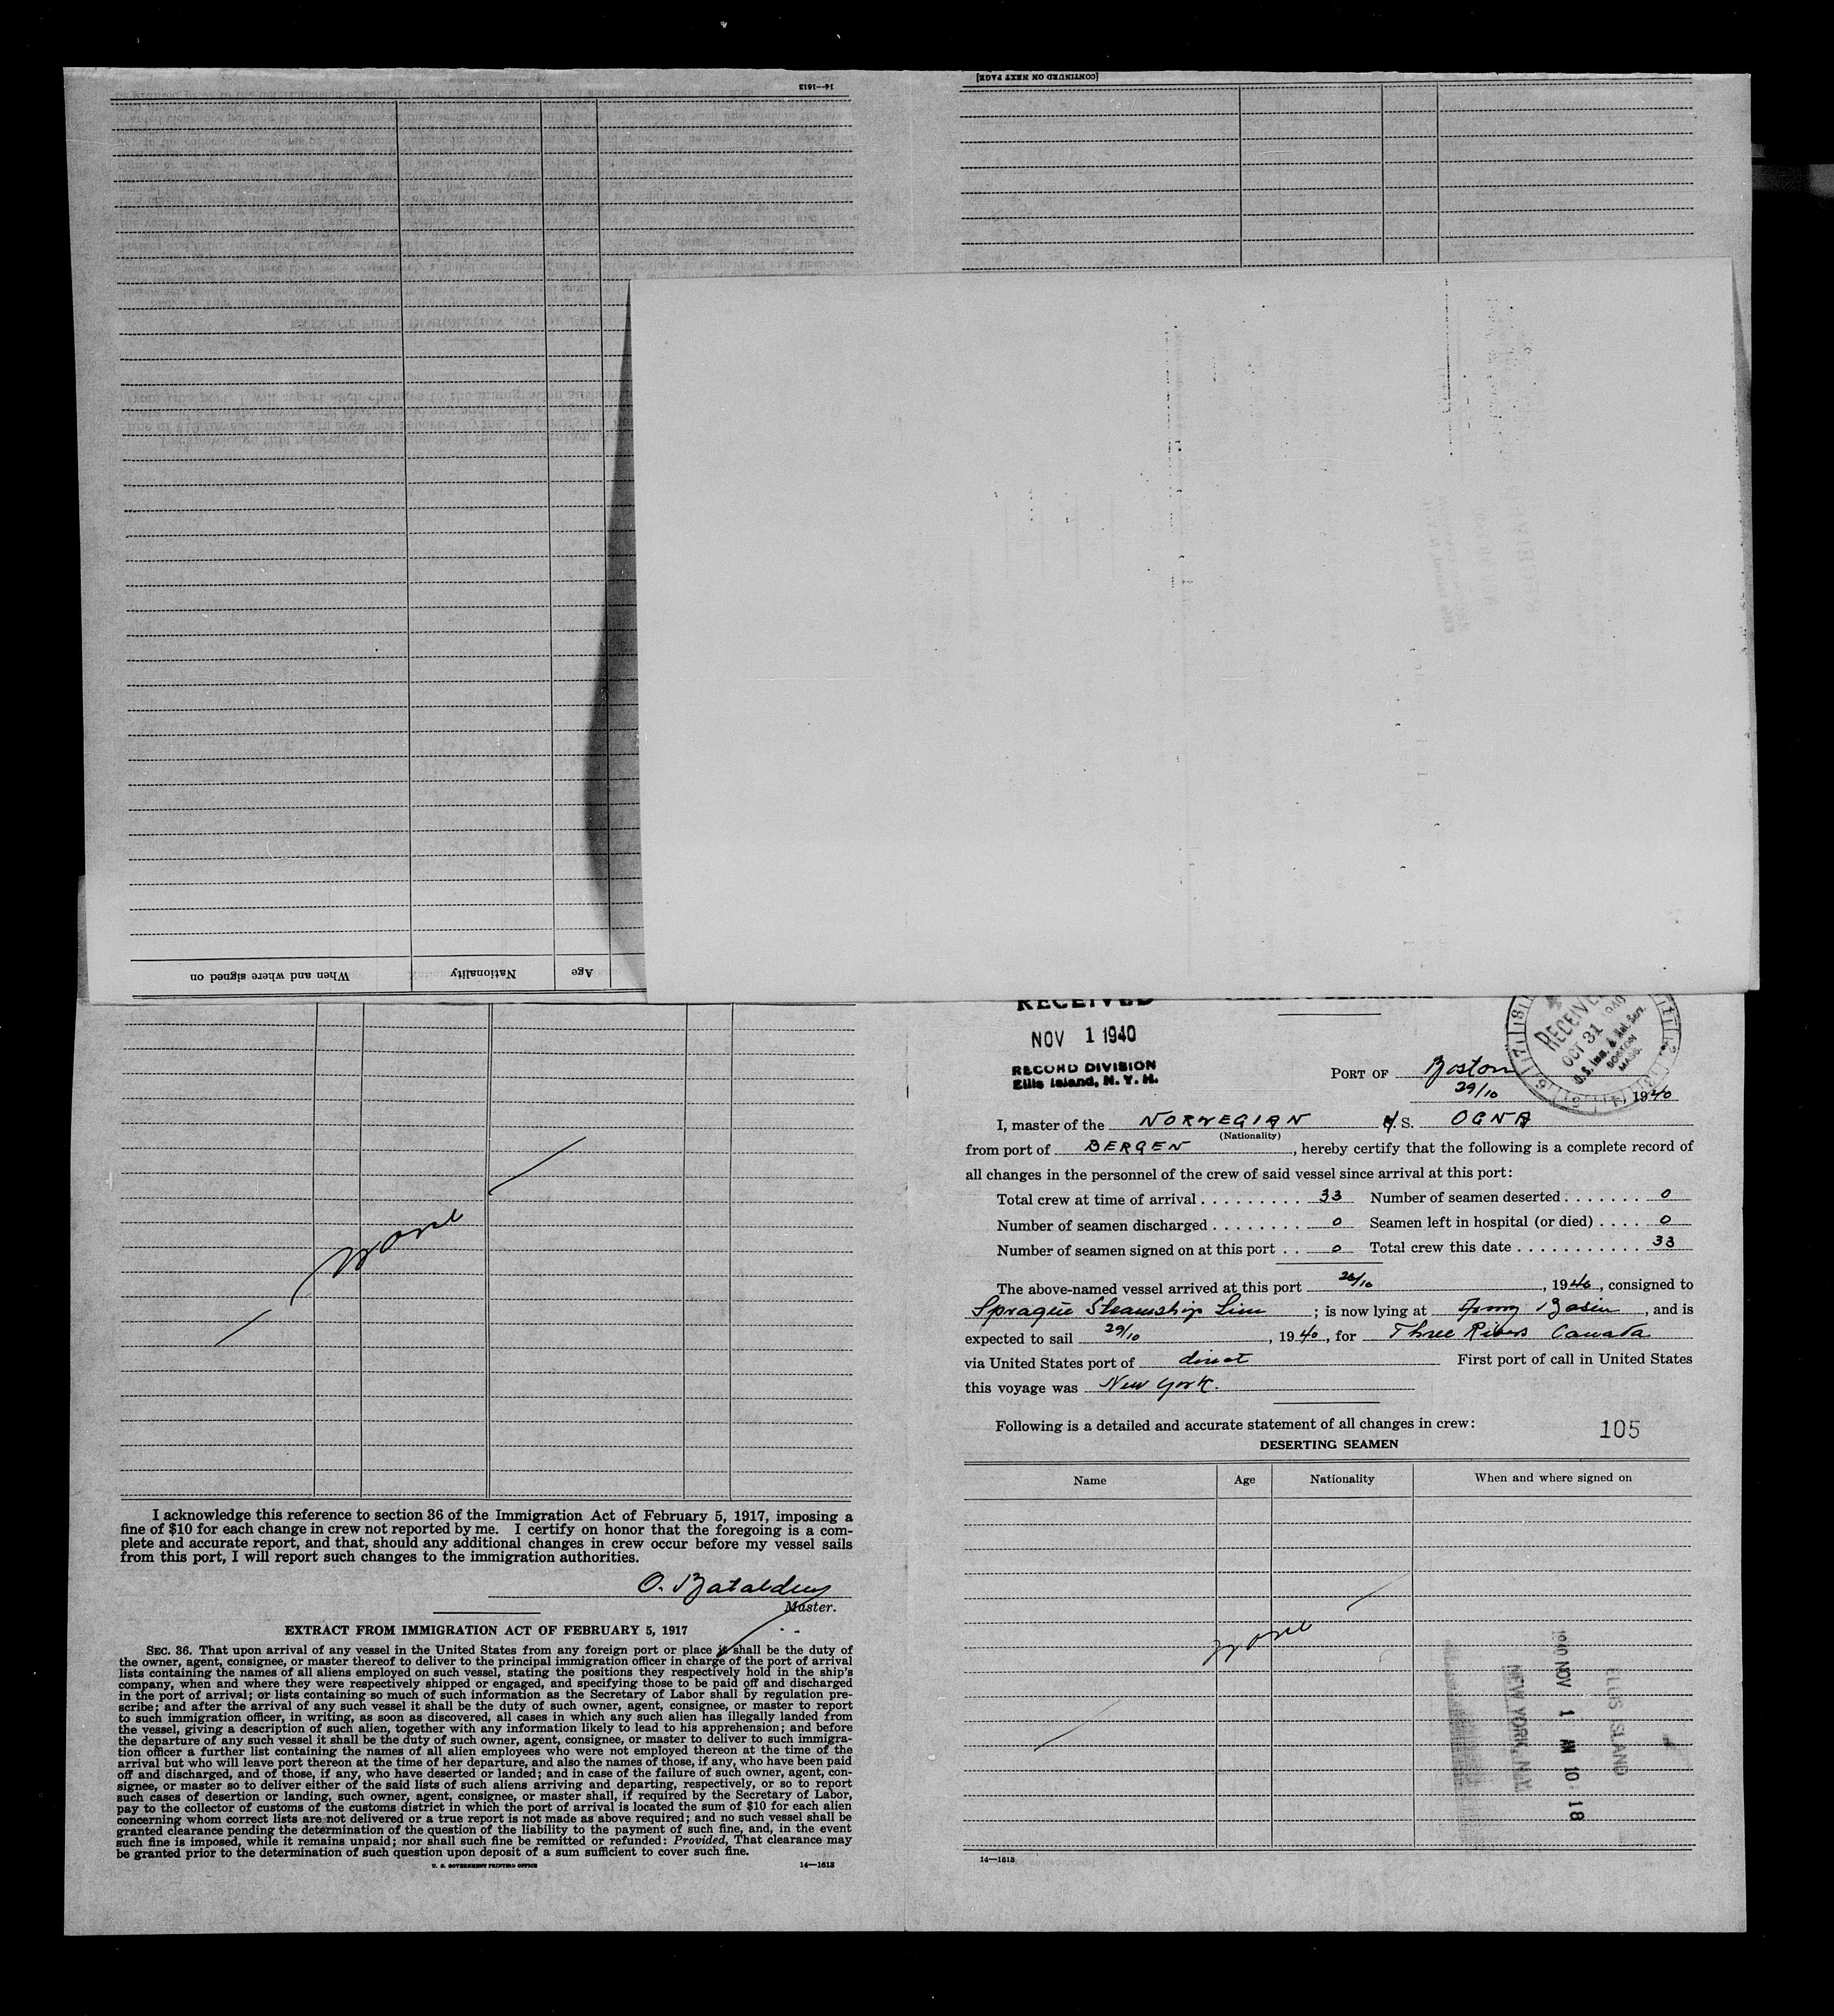 [CONTINUED ON NEXT PAGE]
14—1613
When and where signed on
Nationality
Age
None
I acknowledge this reference to section 36 of the Immigration Act of February 5, 1917, imposing a
fine of $10 for each change in crew not reported by me. I certify on honor that the foregoing is a com-
plete and accurate report, and that, should any additional changes in crew occur before my vessel sails
from this port, I will report such changes to the immigration authorities.
O. Batalden
Master.
EXTRACT FROM IMMIGRATION ACT OF FEBRUARY 5, 1917
SEC. 36. That upon arrival of any vessel in the United States from any foreign port or place it shall be the duty of
the owner, agent, consignee, or master thereof to deliver to the principal immigration officer in charge of the port of arrival
lists containing the names of all aliens employed on such vessel, stating the positions they respectively hold in the ship's
company, when and where they were respectively shipped or engaged, and specifying those to be paid off and discharged
in the port of arrival; or lists containing so much of such information as the Secretary of Labor shall by regulation pre-
scribe; and after the arrival of any such vessel it shall be the duty of such owner, agent, consignee, or master to report
to such immigration officer, in writing, as soon as discovered, all cases in which any such alien has illegally landed from
the vessel, giving a description of such alien, together with any information likely to lead to his apprehension; and before
the departure of any such vessel it shall be the duty of such owner, agent, consignee, or master to deliver to such immigra-
tion officer a further list containing the names of all alien employees who were not employed thereon at the time of the
arrival but who will leave port thereon at the time of her departure, and also the names of those, if any, who have been paid
off and discharged, and of those, if any, who have deserted or landed; and in case of the failure of such owner, agent, con-
signee, or master so to deliver either of the said lists of such aliens arriving and departing, respectively, or so to report
such cases of desertion or landing, such owner, agent, consignee, or master shall, if required by the Secretary of Labor,
pay to the collector of customs of the customs district in which the port of arrival is located the sum of $10 for each alien
concerning whom correct lists are not delivered or a true report is not made as above required; and no such vessel shall be
granted clearance pending the determination of the question of the liability to the payment of such fine, and, in the event
such fine is imposed, while it remains unpaid; nor shall such fine be remitted or refunded: Provided, That clearance may
be granted prior to the determination of such question upon deposit of a sum sufficient to cover such fine.
U. S. GOVERNMENT PRINTING OFFICE
14—1613
RECEIVED
NOV 1 1940
RECORD DIVISION
Ellis Island, N. Y. H.
RECEIVED
OCT 31 1940
U.S. Imm. & Nat. Ser.
BOSTON
MASS.
PORT OF Boston
29/10, 1940
I, master of the NORWEGIAN S. S. OGNA
(Nationality)
from port of BERGEN, hereby certify that the following is a complete record of
all changes in the personnel of the crew of said vessel since arrival at this port:
Total crew at time of arrival . . . . . . . . . 33 Number of seamen deserted . . . . . . . 0
Number of seamen discharged . . . . . . . . 0 Seamen left in hospital (or died) . . . . 0
Number of seamen signed on at this port . . 0 Total crew this date . . . . . . . . . . . 33
The above-named vessel arrived at this port /10, 1940, consigned to
Sprague Steamship Line; is now lying at Army Basin, and is
expected to sail 29/10, 1940, for Three Rivers Canada
via United States port of direct First port of call in United States
this voyage was New York.
Following is a detailed and accurate statement of all changes in crew:
105
DESERTING SEAMEN
Name Age Nationality When and where signed on
None
ELLIS ISLAND
1940 NOV 1 AM 10:18
NEW YORK, N.Y.
14—1613